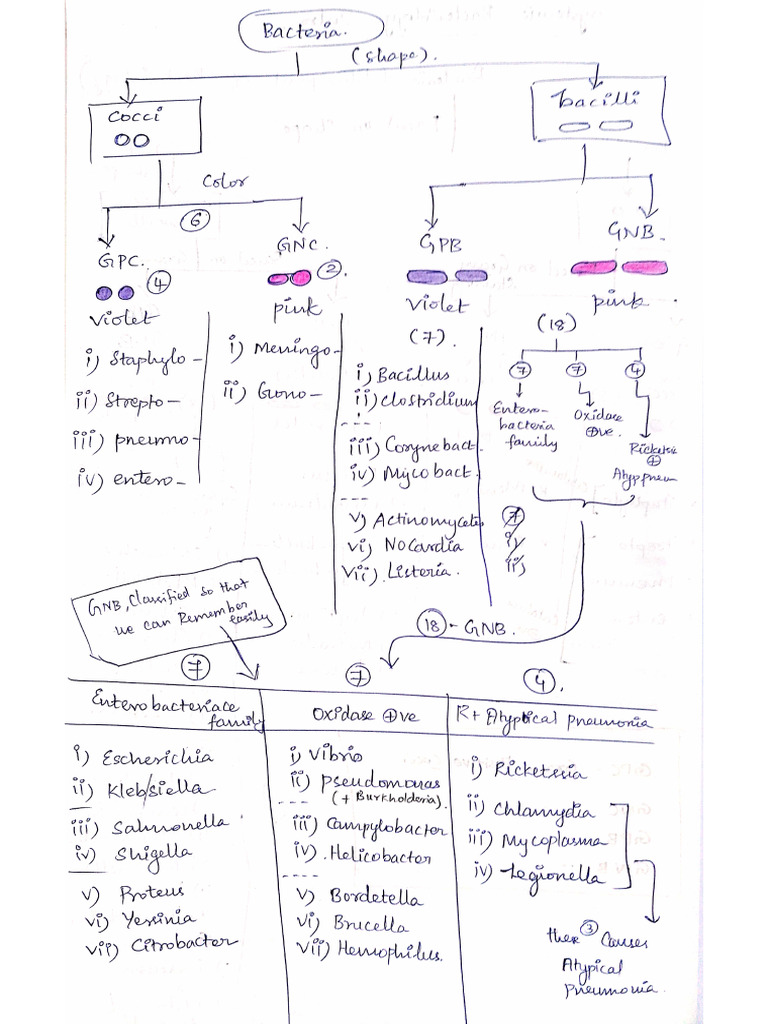 Bacteria.
(shape).
Cocci
bacilli
Color
6
GPC.
4
violet
GNC.
2.
pink
GPB
violet
GNB.
pink
i) Staphylo -
ii) Strepto -
iii) pneumo -
iv) entero -
i) Meningo -
ii) Gono -
(7).
i) Bacillus
ii) Clostridium
iii) Corynebact.
iv) Mycobact.
v) Actinomycetes
vi) Nocardia
vii) Listeria.
(18)
7
7
4
Entero-
bacteria
family
Oxidase
+ve.
Ricketsia
+
Atyp pneum
7
i)
ii)
GNB, Classified so that
we can Remember
easily
18 - GNB.
7
7
4.
Enterobacteriace
family
Oxidase +ve
R + Atypical pneumonia
i) Escherichia
ii) Klebsiella
iii) Salmonella
iv) Shigella
v) Proteus
vi) Yersinia
vii) Citrobacter
i) Vibrio
ii) Pseudomonas
(+ Burkholderia).
iii) Campylobacter
iv). Helicobacter
v) Bordetella
vi) Brucella
vii) Hemophilus.
i) Ricketsia
ii) Chlamydia
iii) Mycoplasma
iv) Legionella
ther 3 Causes
Atypical
pneumonia.